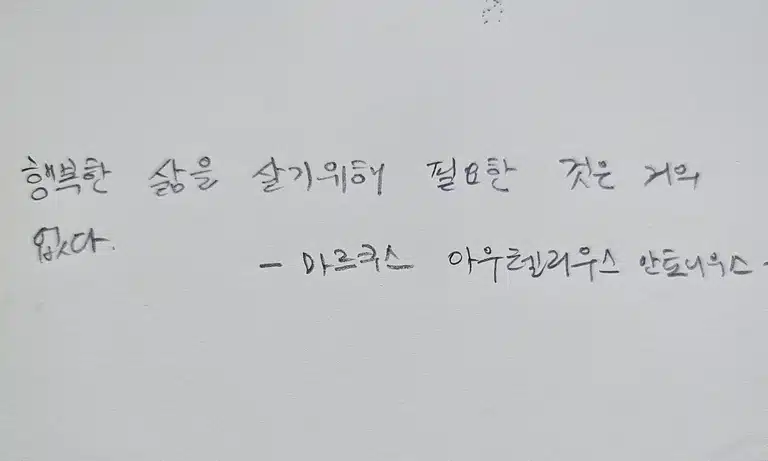 행복한 삶을 살기위해 필요한 것은 거의
없다.
- 마르쿠스 아우렐리우스 안토니우스 -